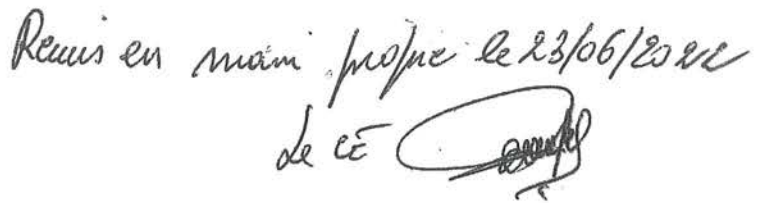 Remis en main propre le 23/06/2022
Le CE